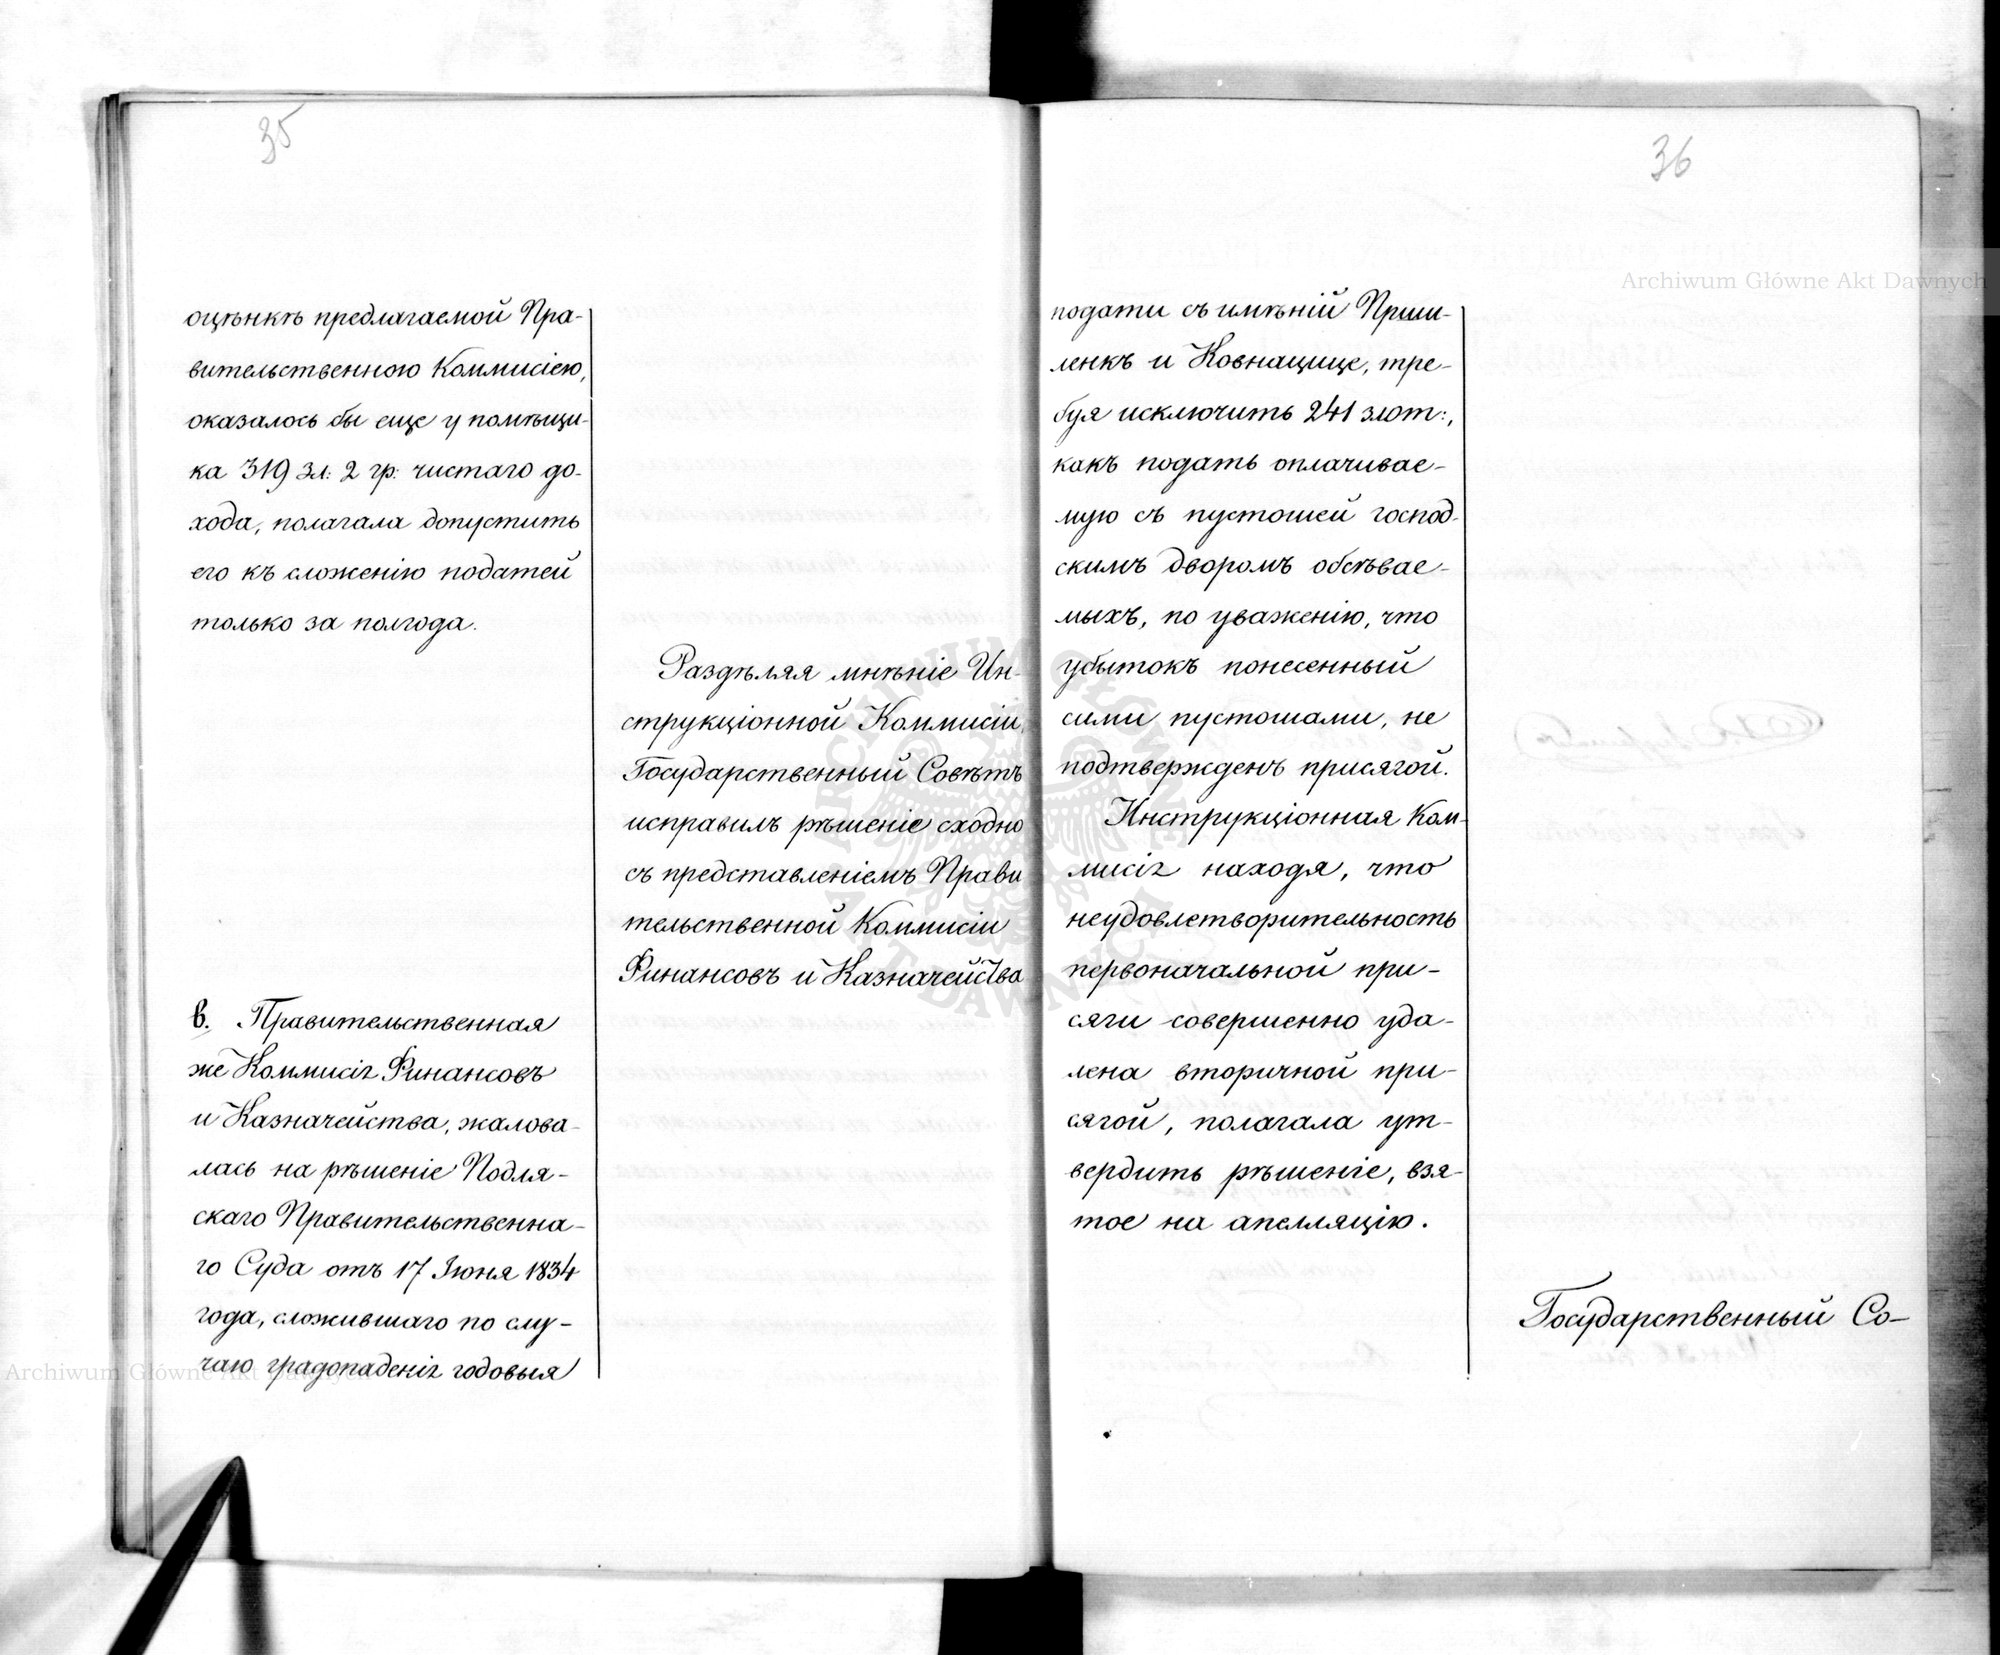 35
оцѣнкѣ предлагаемой Пра-
вительственною Коммисіею,
оказалось бы еще у помѣщи-
ка 319 зл: 2 гр: чистаго до-
хода, полагала допустить
его къ сложенію податей
только за полгода.
Раздѣляя мнѣніе Ин-
струкціонной Коммисіи,
Государственный Совѣтъ
исправилъ рѣшеніе сходно
съ представленіемъ Прави
тельственной Коммисіи
Финансовъ и Казначейства
в. Правительственная
же Коммисія Финансовъ
и Казначейства, жалова-
лась на рѣшеніе Подля-
скаго Правительственна-
го Суда отъ 17 Іюня 1834
года, сложившаго по слу-
чаю градопаденія годовыя
36
подати съ имѣній Приши-
ленкъ и Ковнащище, тре-
буя исключить 241 злот:,
какъ подать оплачивае-
мую съ пустошей господ-
скимъ дворомъ обсѣвае-
мыхъ, по уваженію, что
убытокъ понесенный
сими пустошами, не
подтвержденъ присягой.
Инструкціонная Ком-
мисія находя, что
неудовлетворительность
первоначальной при-
сяги совершенно уда-
лена вторичной при-
сягой, полагала ут-
вердить рѣшеніе, взя-
тое на апелляцію.
Государственный Со-
Archiwum Główne Akt Dawnych
Archiwum Główne Akt Dawnych
ARCHIWUM GŁÓWNE AKT DAWNYCH